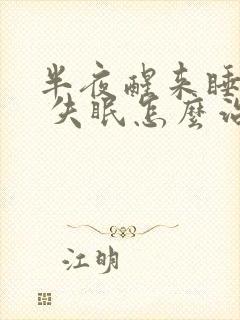 半夜醒来睡
失眠怎麼治
江明